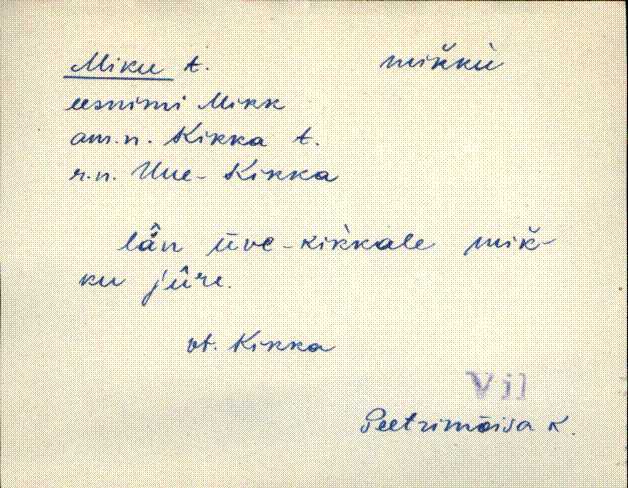 Miku t. mik̆kù
eesnimi Mikk
am.n. Kikka t.
r.n. Uue-Kikka
lä̂n üve-kik̀kale mik̆-
ku jûre.
vt. Kikka
Vil
Peetrimõisa k.